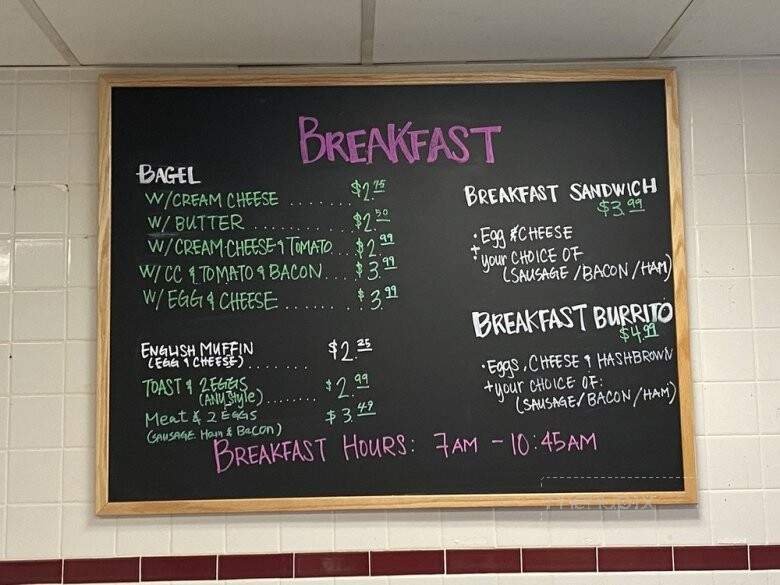 BREAKFAST
BAGEL
W/CREAM CHEESE ....... $2.75
W/ BUTTER ............ $2.50
W/CREAM CHEESE & TOMATO... $2.99
W/ CC & TOMATO & BACON.... $3.99
W/ EGG & CHEESE ....... $3.99
ENGLISH MUFFIN $2.25
(EGG & CHEESE) ........
TOAST & 2 EGGS $2.99
(ANY Style) .......
Meat & 2 EGGS $3.49
(SAUSAGE Ham & Bacon)
BREAKFAST SANDWICH
$3.99
• Egg & CHEESE
+ your CHOICE OF
(SAUSAGE / BACON / HAM)
BREAKFAST BURRITO
$4.99
• Eggs, CHEESE & HASHBROWN
+ your CHOICE OF:
(SAUSAGE / BACON / HAM)
BREAKFAST HOURS: 7AM - 10:45AM
menupix